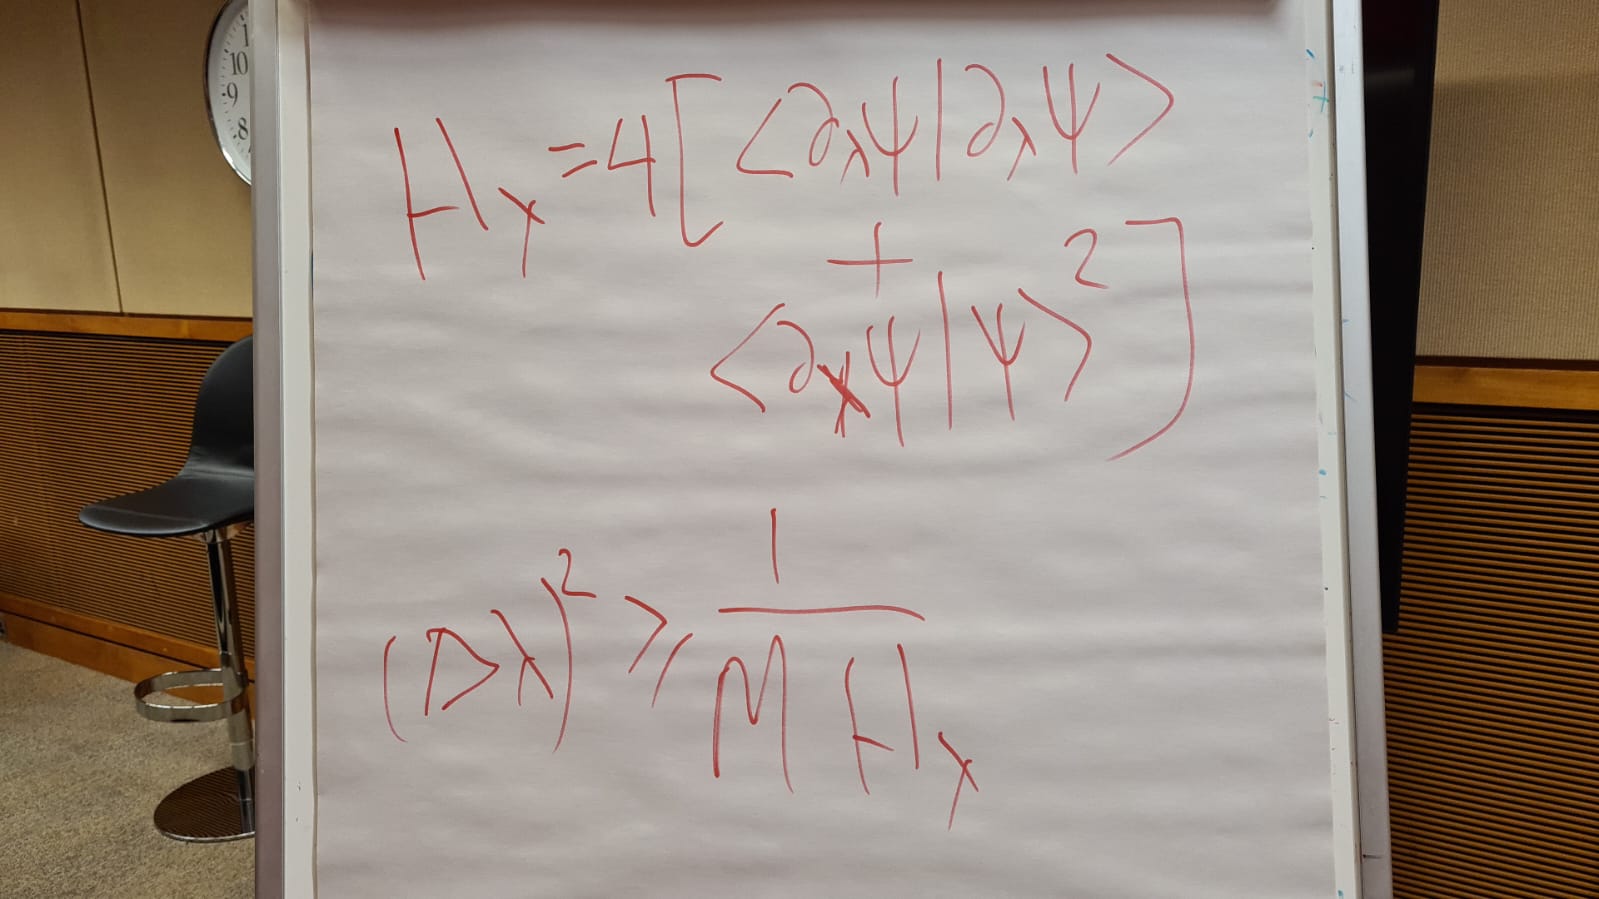 1
10
9
8
H_λ = 4[⟨∂_λψ|∂_λψ⟩
+
⟨∂_λψ|ψ⟩²]
(Δλ)² ≥ 1/(M H_λ)